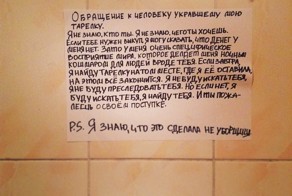 ОБРАЩЕНИЕ К ЧЕЛОВЕКУ УКРАВШЕМУ МОЮ
ТАРЕЛКУ.
Я НЕ ЗНАЮ, КТО ТЫ. Я НЕ ЗНАЮ, ЧЕГО ТЫ ХОЧЕШЬ.
ЕСЛИ ТЕБЕ НУЖЕН ВЫКУП, Я МОГУ СКАЗАТЬ, ЧТО ДЕНЕГ У
МЕНЯ НЕТ. ЗАТО У МЕНЯ ОЧЕНЬ СПЕЦИФИЧЕСКОЕ
ВОСПРИЯТИЕ МИРА, КОТОРОЕ ДЕЛАЕТ МЕНЯ НОЧНЫМ
КОШМАРОМ ДЛЯ ЛЮДЕЙ ВРОДЕ ТЕБЯ. ЕСЛИ ЗАВТРА
Я НАЙДУ ТАРЕЛКУ НА ТОМ МЕСТЕ, ГДЕ Я ЕЁ ОСТАВИЛА,
НА ЭТОМ ВСЁ ЗАКОНЧИТСЯ. Я НЕ БУДУ ИСКАТЬ ТЕБЯ,
Я НЕ БУДУ ПРЕСЛЕДОВАТЬ ТЕБЯ. НО ЕСЛИ НЕТ, Я
БУДУ ИСКАТЬ ТЕБЯ, Я НАЙДУ ТЕБЯ. И ТЫ ПОЖА-
ЛЕЕШЬ О СВОЁМ ПОСТУПКЕ.
P.S. Я ЗНАЮ, ЧТО ЭТО СДЕЛАЛА НЕ УБОРЩИЦА